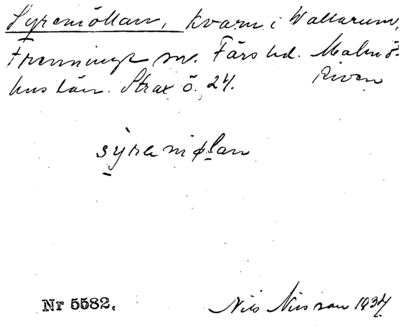 Syremöllan, kvarn i Wallarum,
Frenninge sn. Färs hd. Malmö-
hus län. Strax ö. 24. Riven
sýrəmøļan
Nr 5582. Nils Nilsson 1934